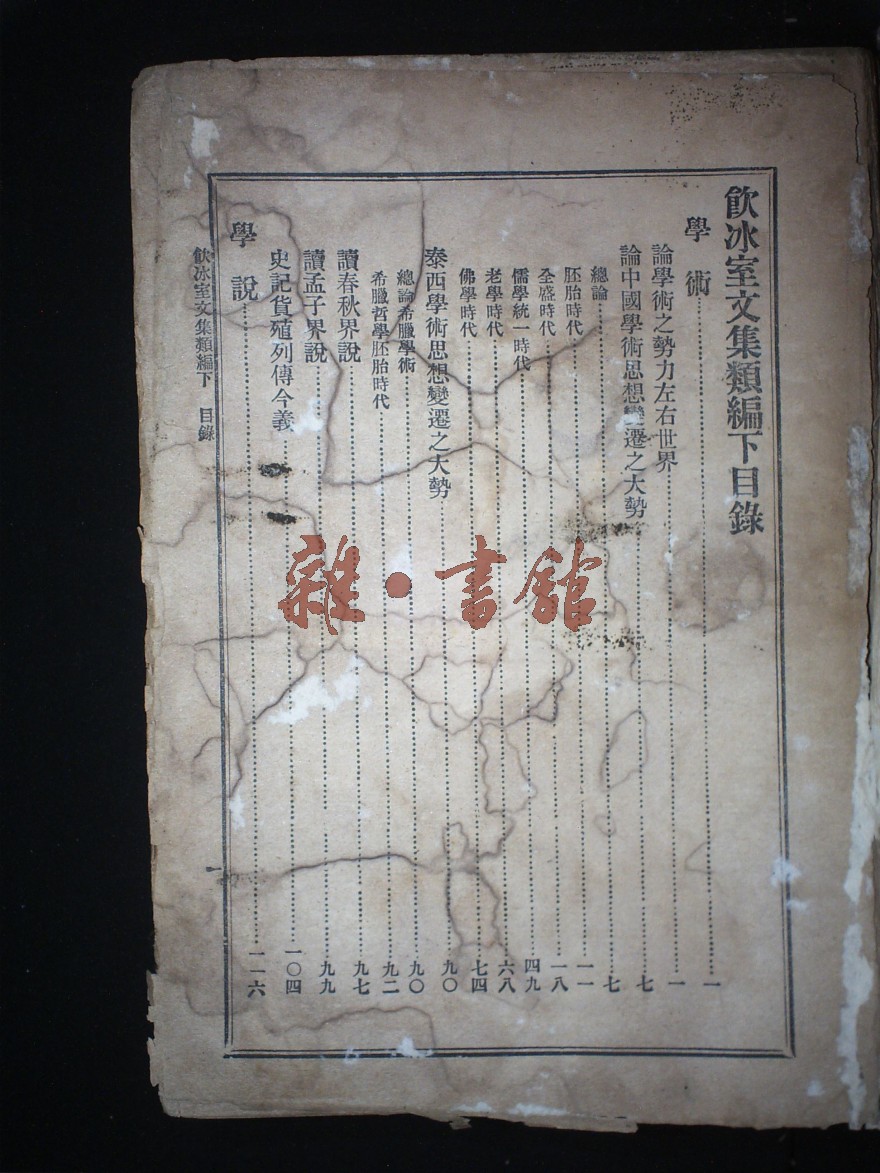 飲冰室文集類編下目錄
學術……一
論學術之勢力左右世界……一
論中國學術思想變遷之大勢……七
總論……七
胚胎時代……一一
全盛時代……一八
儒學統一時代……四九
老學時代……六八
佛學時代……七四
泰西學術思想變遷之大勢……九〇
總論希臘學術……九〇
希臘哲學胚胎時代……九二
讀春秋界說……九七
讀孟子界說……九九
史記貨殖列傳今義……一〇四
學說……一一六
飲冰室文集類編下 目錄
一
雜·書館